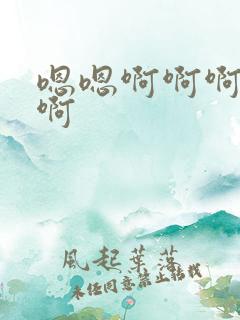 嗯嗯啊啊啊
啊
風起葉落
未经同意禁止转载